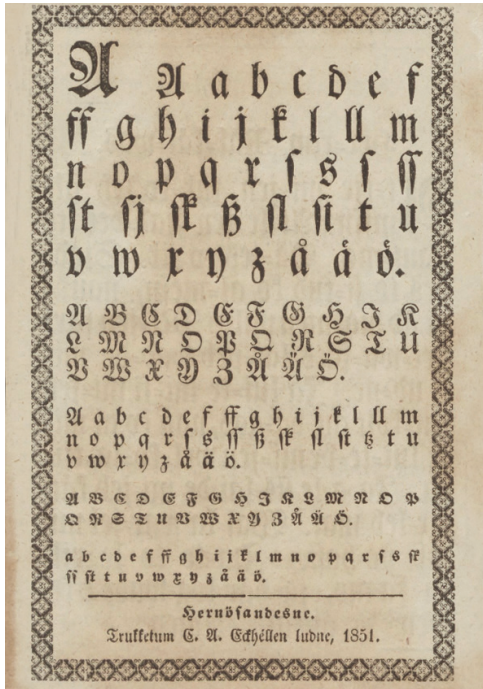 A A a b c d e f
ff g h i j k l ll m
n o p q r ſ s ſ ſſ
ſt ſj ſk ß ſl ſi t u
v w x y z å ä ö.
A B C D E F G H I K
L M N O P Q R S T U
V W X Y Z Å Ä Ö.
A a b c d e f ff g h i j k l ll m
n o p q r ſ s ſſ ß ſk ſl ſt tz t u
v w x y z å ä ö.
A B C D E F G H I K L M N O P
Q R S T U V W X Y Z Å Ä Ö.
a b c d e f ff g h i j k l m n o p q r ſ s ſk
ſſ ſt t u v w x y z å ä ö.
Hernösandesne.
Trukketum C. A. Eckhéllen ludne, 1851.